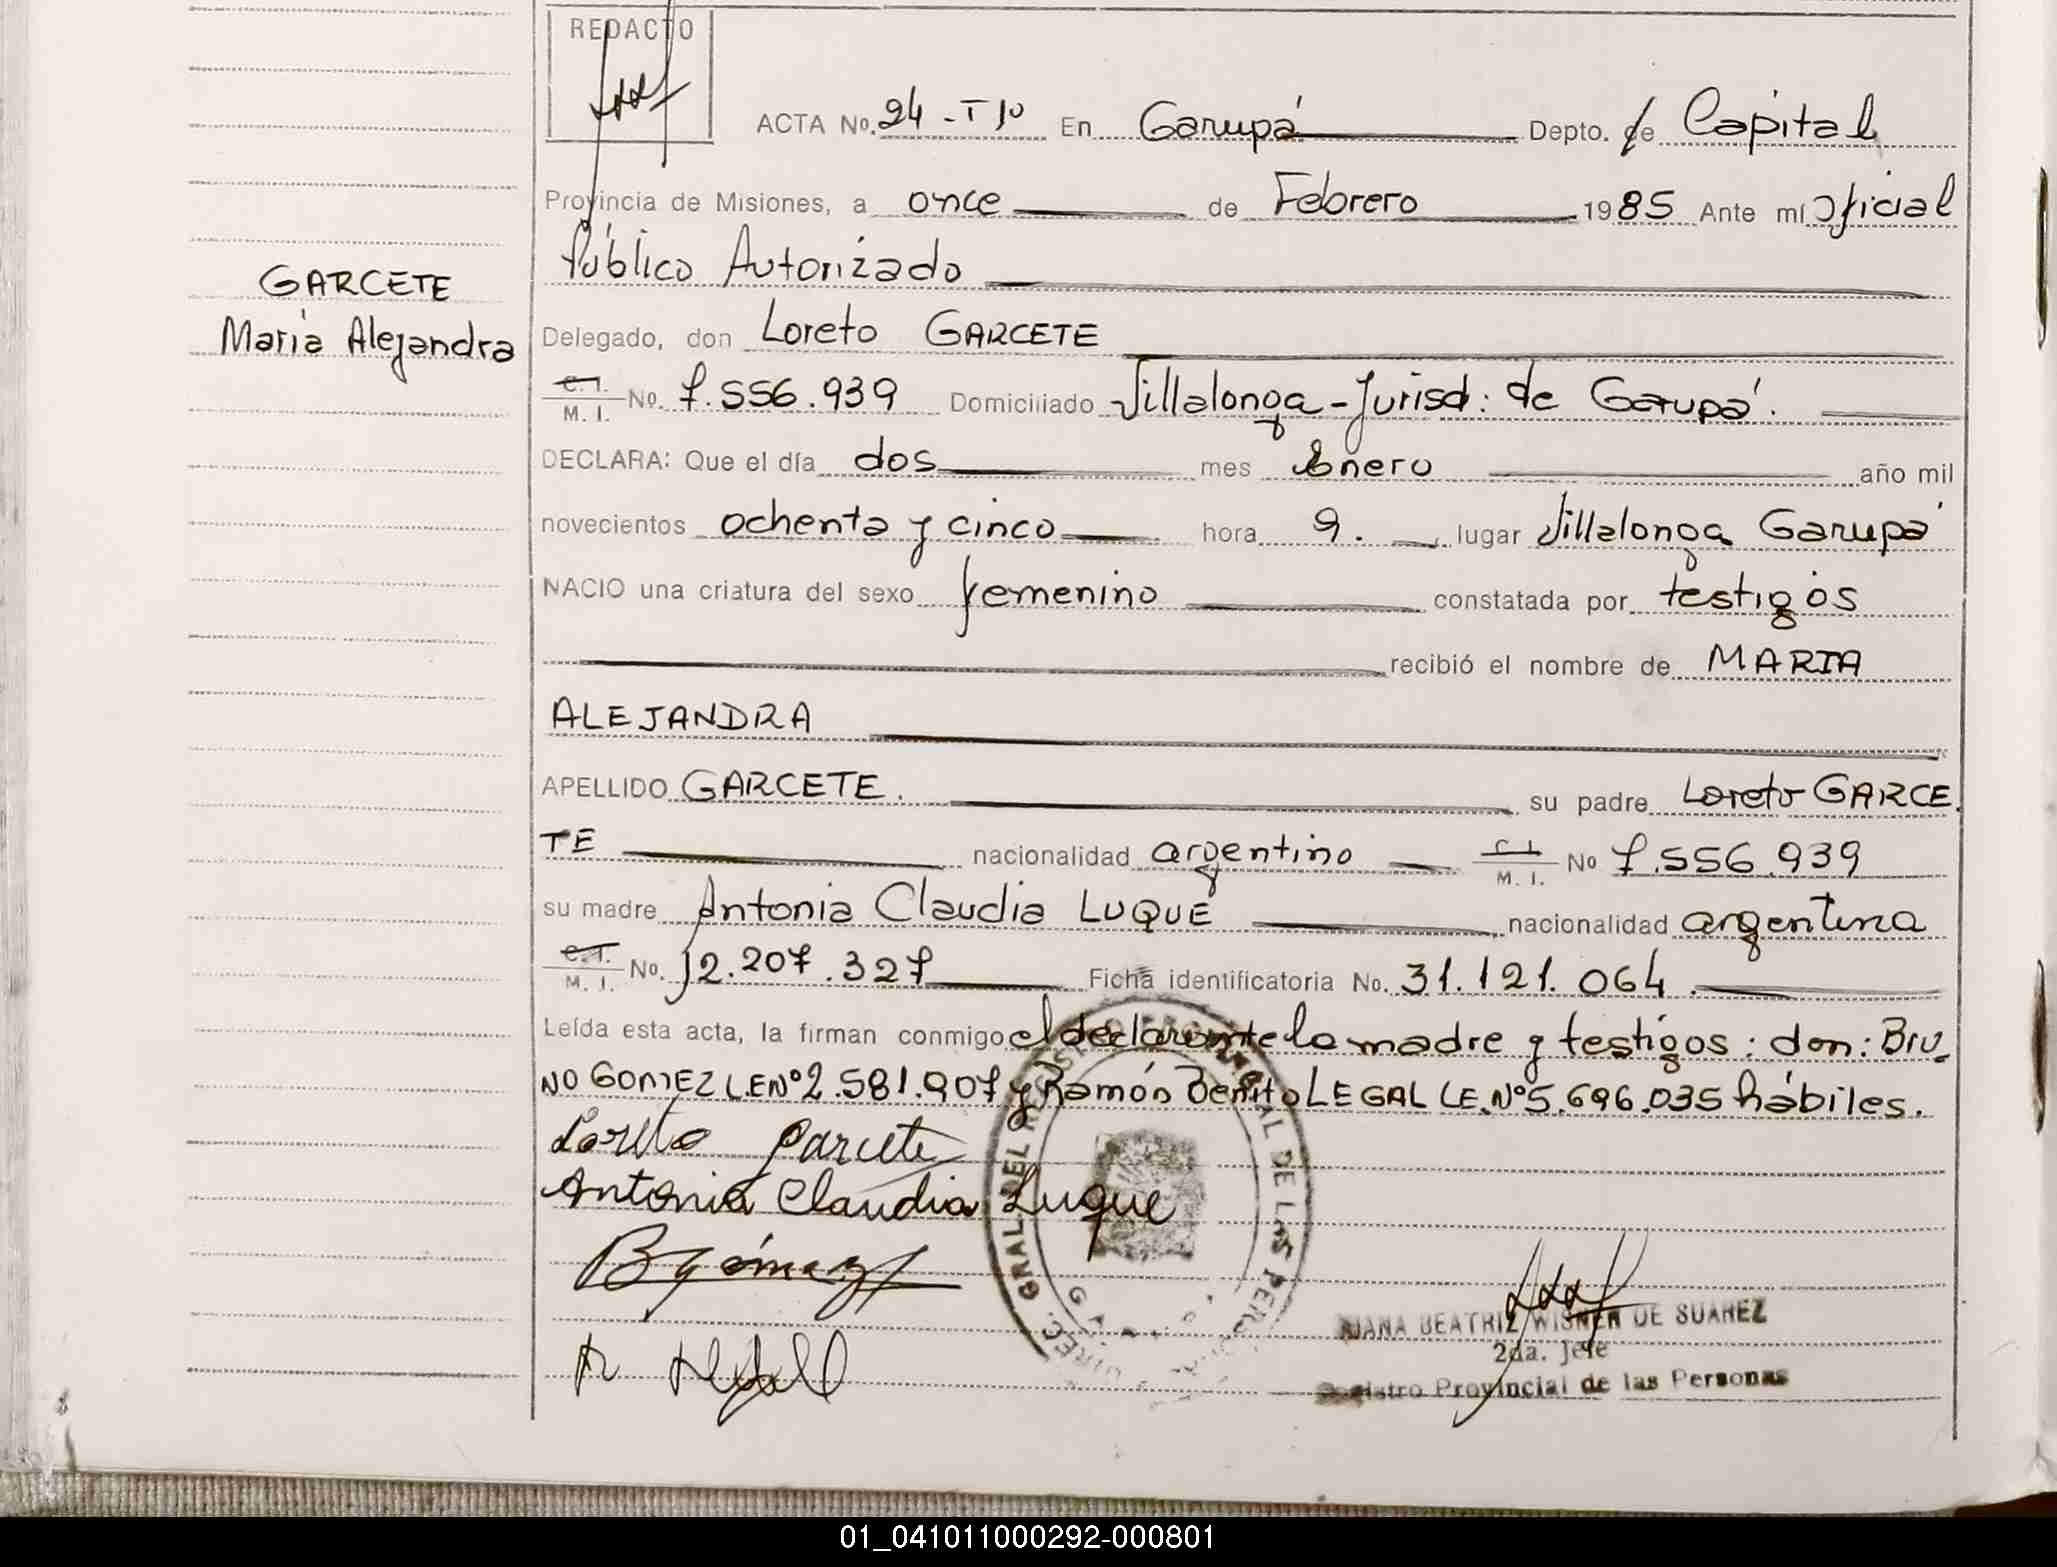 REDACTO
ACTA No. 24 - Tº 1º En Garupá Depto. de Capital
Provincia de Misiones, a once de Febrero 1985 Ante mí Oficial
Público Autorizado
GARCETE
María Alejandra
Delegado, don Loreto GARCETE
C. I. M. I. No. 7.556.939 Domiciliado Villalonga - Jurisd: de Garupá.
DECLARA: Que el día dos mes Enero año mil
novecientos ochenta y cinco hora 9. lugar Villalonga Garupá
NACIO una criatura del sexo femenino constatada por testigos
recibió el nombre de MARIA
ALEJANDRA
APELLIDO GARCETE. su padre Loreto GARCE
TE nacionalidad argentino C. I. M. I. No 7.556.939
su madre Antonia Claudia LUQUE nacionalidad argentina
C. I. M. I. No. 12.207.327 Ficha identificatoria No. 31.121.064
Leída esta acta, la firman conmigo el declarante la madre y testigos: don: BRU
NO GOMEZ L.E Nº 2.581.907 y Ramón Benito LEGAL LE. Nº 5.696.035 hábiles.
Loreto Garcete
Antonia Claudia Luque
B Gómez
DIREC. GRAL. DEL REGISTRO PROVINCIAL DE LAS PERSONAS
JUANA BEATRIZ WISNER DE SUAREZ
2da. Jefe
Registro Provincial de las Personas
01_041011000292-000801